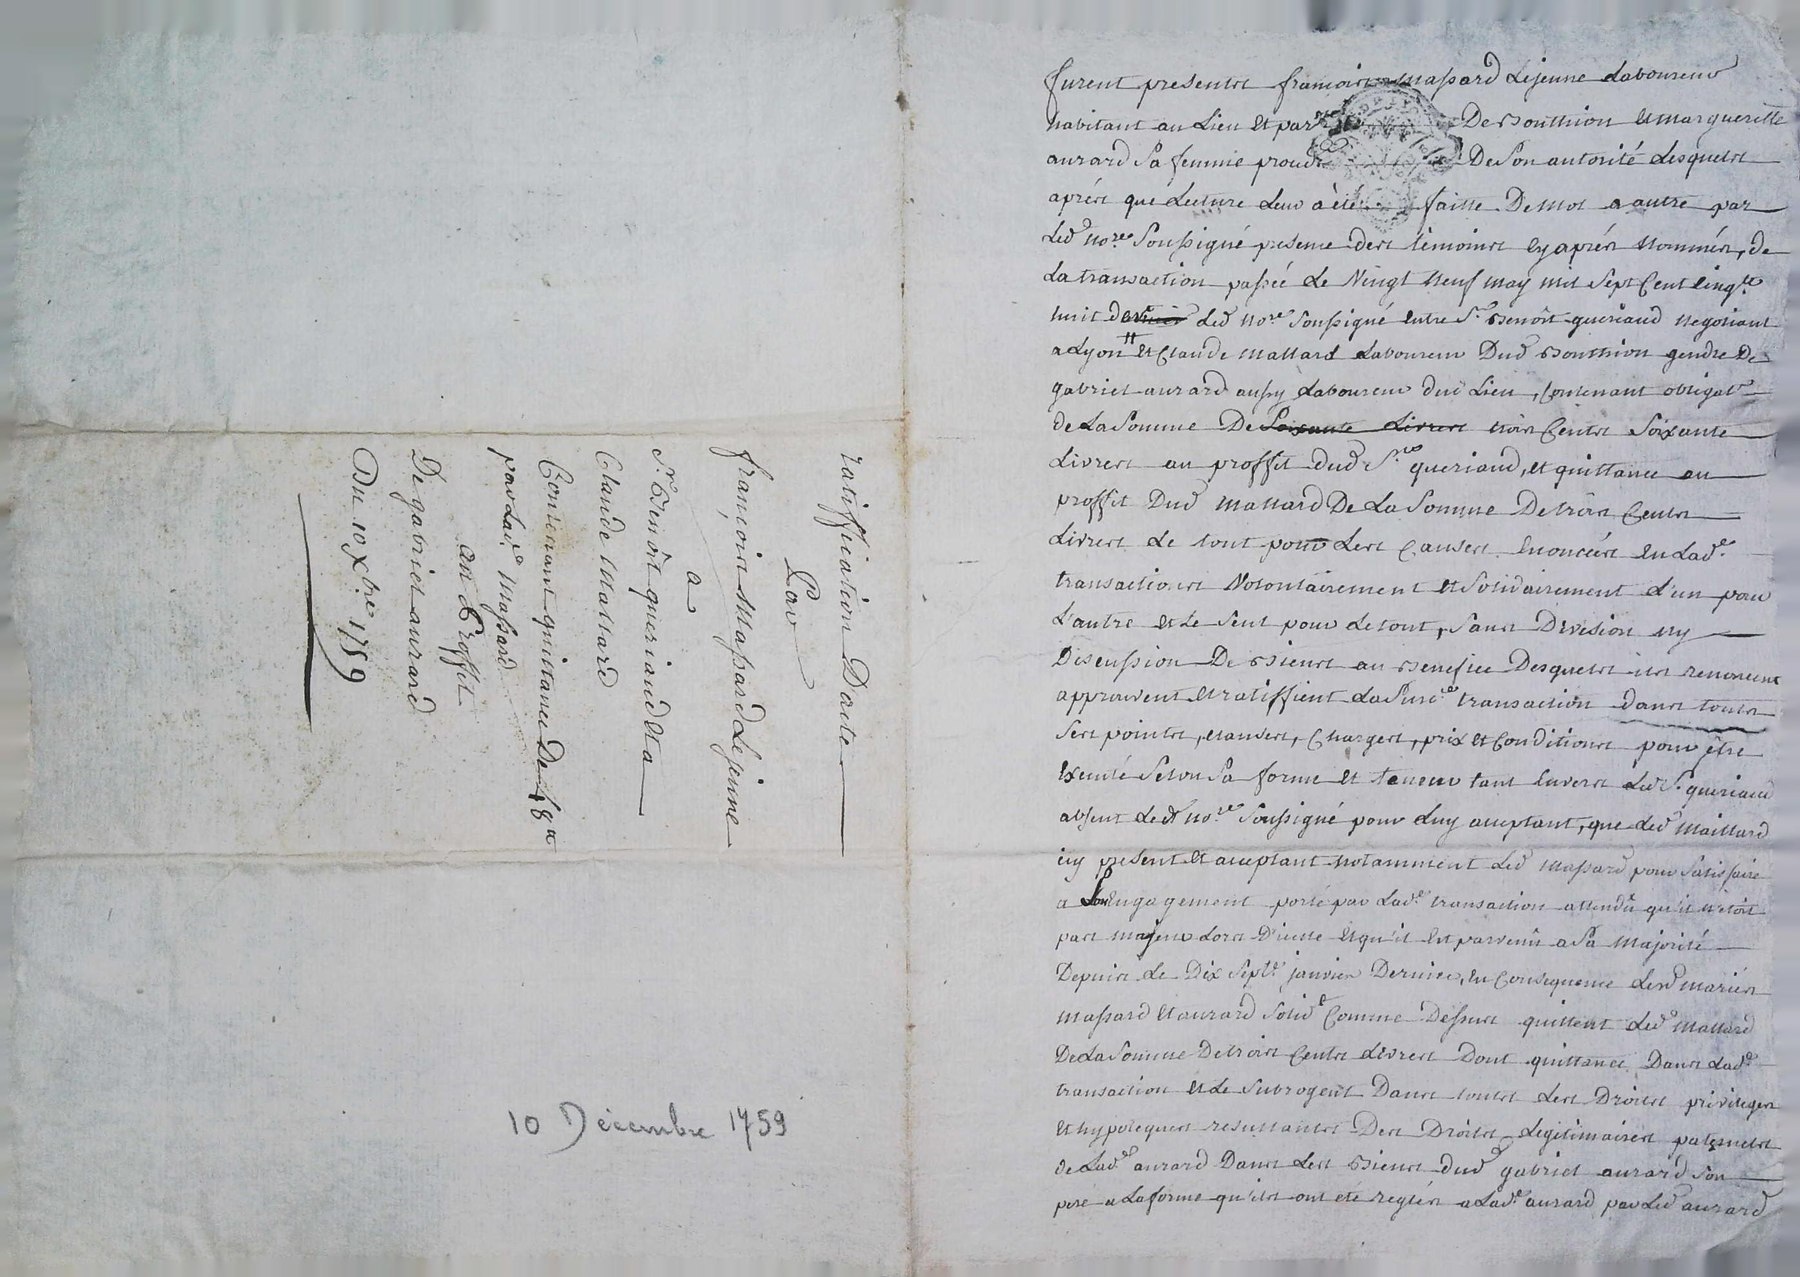 ratiffication D'acte
Par
françois Massard Lejeune
a
Sr. Benoit queriaud et a
Claude Mallard
Contenant quittance De
par lad.e Massard
au Proffit
De gabriel aurard
Du 10 xbre 1759
10 Décembre 1759
furent presents françois Massard Lejeune Laboureur
habitant au Lieu et par De Bouthion et Margueritte
aurard Sa femme De Son autorité Lesquels
aprés que Lecture Leur a été faitte De Mot a autre par
Led. nore Soussigné presence des temoins cy aprés nommés, de
La transaction passée Le Vingt neuf may mil Sept Cent cinqte
huit Led nore Soussigné entre Sr. Benoit queriaud negotiant
a Lyon et Claude Mallard Laboureur Dud Bouthion gendre De
gabriel aurard aussy Laboureur dud Lieu, Contenant obligaton
de La Somme De Soixante Livres trois Cents Soixante
Livres au proffit dud Sr queriaud, et quittance au
proffit Dud Mallard De La Somme De trois Cents
Livres Le tout pour Les Causes enoncées en Lad.e
transactions Volontairement et Solidairement L'un pour
L'autre et Le Seul pour Le tout, Sans Division ny
Discussion De Biens au Benefice Desquels ils renoncent
approuvent et ratiffient La Susd.e transaction dans touts
Ses points, clauses, Charges, prix et Conditions pour être
Executé Selon Sa forme et teneur tant envers Led Sr queriaud
absent Led nore Soussigné pour Luy acceptant, que Led Maillard
icy present et acceptant notamment Led Massard pour Satisfaire
a Son Engagement porté par Lad.e transaction attendû qu'il n'étoit
pas majeur Lors D'icelle et qu'il est parvenû a Sa Majorité
Depuis Le Dix Sept.e janvier Dernier, en Consequence Lesd mariés
Massard et aurard Solid.t Comme Dessus quittent Led Mallard
De La Somme De trois Cents Livres Dont quittance Dans Lad.e
transaction et Le Subrogent Dans touts Les Droits privileges
et hypoteques resultants Des Droits Legitimaires paternels
de Lad.e aurard Dans Les Biens dud gabriel aurard Son
pere a La forme qu'ils ont été reglés a Lad.e aurard par Led aurard